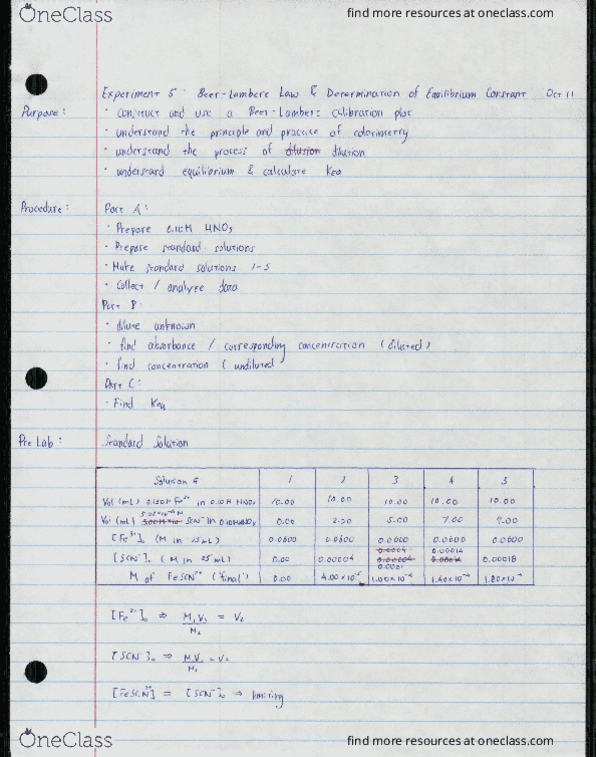 OneClass find more resources at oneclass.com
Experiment 5: Beer-Lambert Law & Determination of Equilibrium Constant Oct 11
Purpose: · Construct and use a Beer-Lambert calibration plot
· understand the principle and practice of colorimetry
· understand the process of dilusion dilution
· understand equilibrium & calculate Keq
Procedure: Part A:
· Prepare 0.10M HNO3
· Prepare standard solutions
· Make standard solutions 1-5
· Collect / analyze data
Part B:
· dilute unknown
· find absorbance / corresponding concentration (diluted)
· find concentration (undiluted
Part C:
· Find Keq
Pre Lab: Standard Solution
Solution # 1 2 3 4 5
Vol (mL) 0.150M Fe³⁺ in 0.10M HNO3 10.00 10.00 10.00 10.00 10.00
Vol (mL) SCN⁻ in 0.10M HNO3 0.00 2.00 5.00 7.00 9.00
[Fe³⁺]o (M in 25mL) 0.0600 0.0600 0.0600 0.0600 0.0600
[SCN⁻]o (M in 25mL) 0.00 0.00004 0.00014 0.00018
M of FeSCN²⁺ ("final") 0.00 4.00×10⁻⁵ 1.00×10⁻⁴ 1.40×10⁻⁴ 1.80×10⁻⁴
[Fe³⁺]o ⇒ M1V1 / M2 = V2
[SCN⁻]o ⇒ M1V1 / M2 = V2
[FeSCN²⁺] = [SCN⁻]o ⇒ limiting
OneClass find more resources at oneclass.com